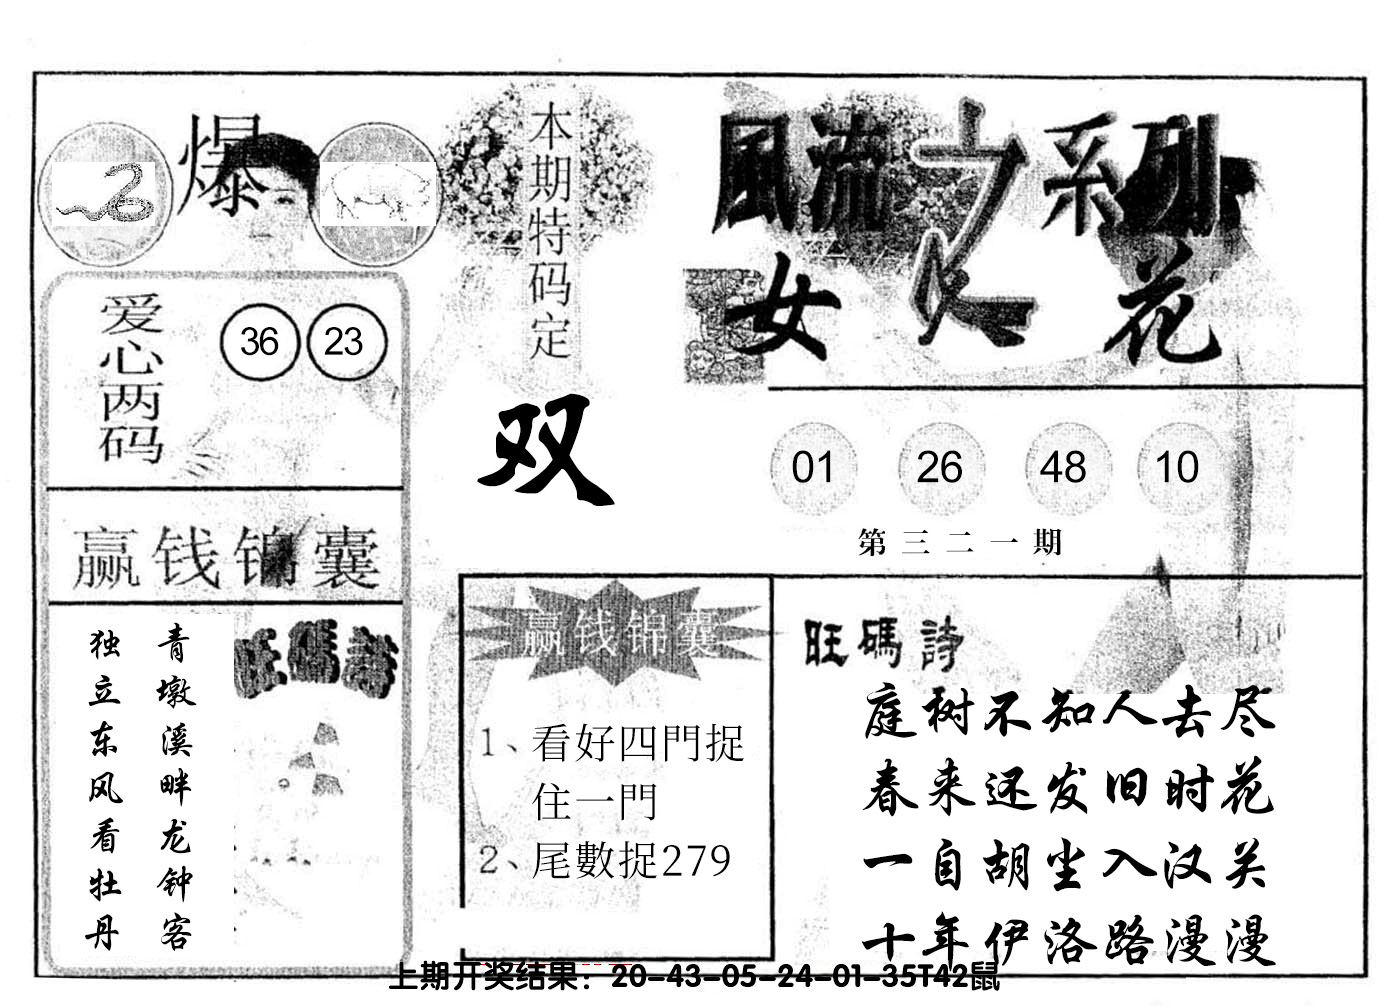 爆
本期特码定
双
風流之系列
女人花
爱心两码
36 23
01 26 48 10
第三二一期
赢钱锦囊
青墩溪畔龙钟客
独立东风看牡丹
旺碼詩
赢钱锦囊
1、看好四門捉
住一門
2、尾數捉279
旺碼詩
庭树不知人去尽
春来还发旧时花
一自胡尘入汉关
十年伊洛路漫漫
上期开奖结果：20-43-05-24-01-35T42鼠